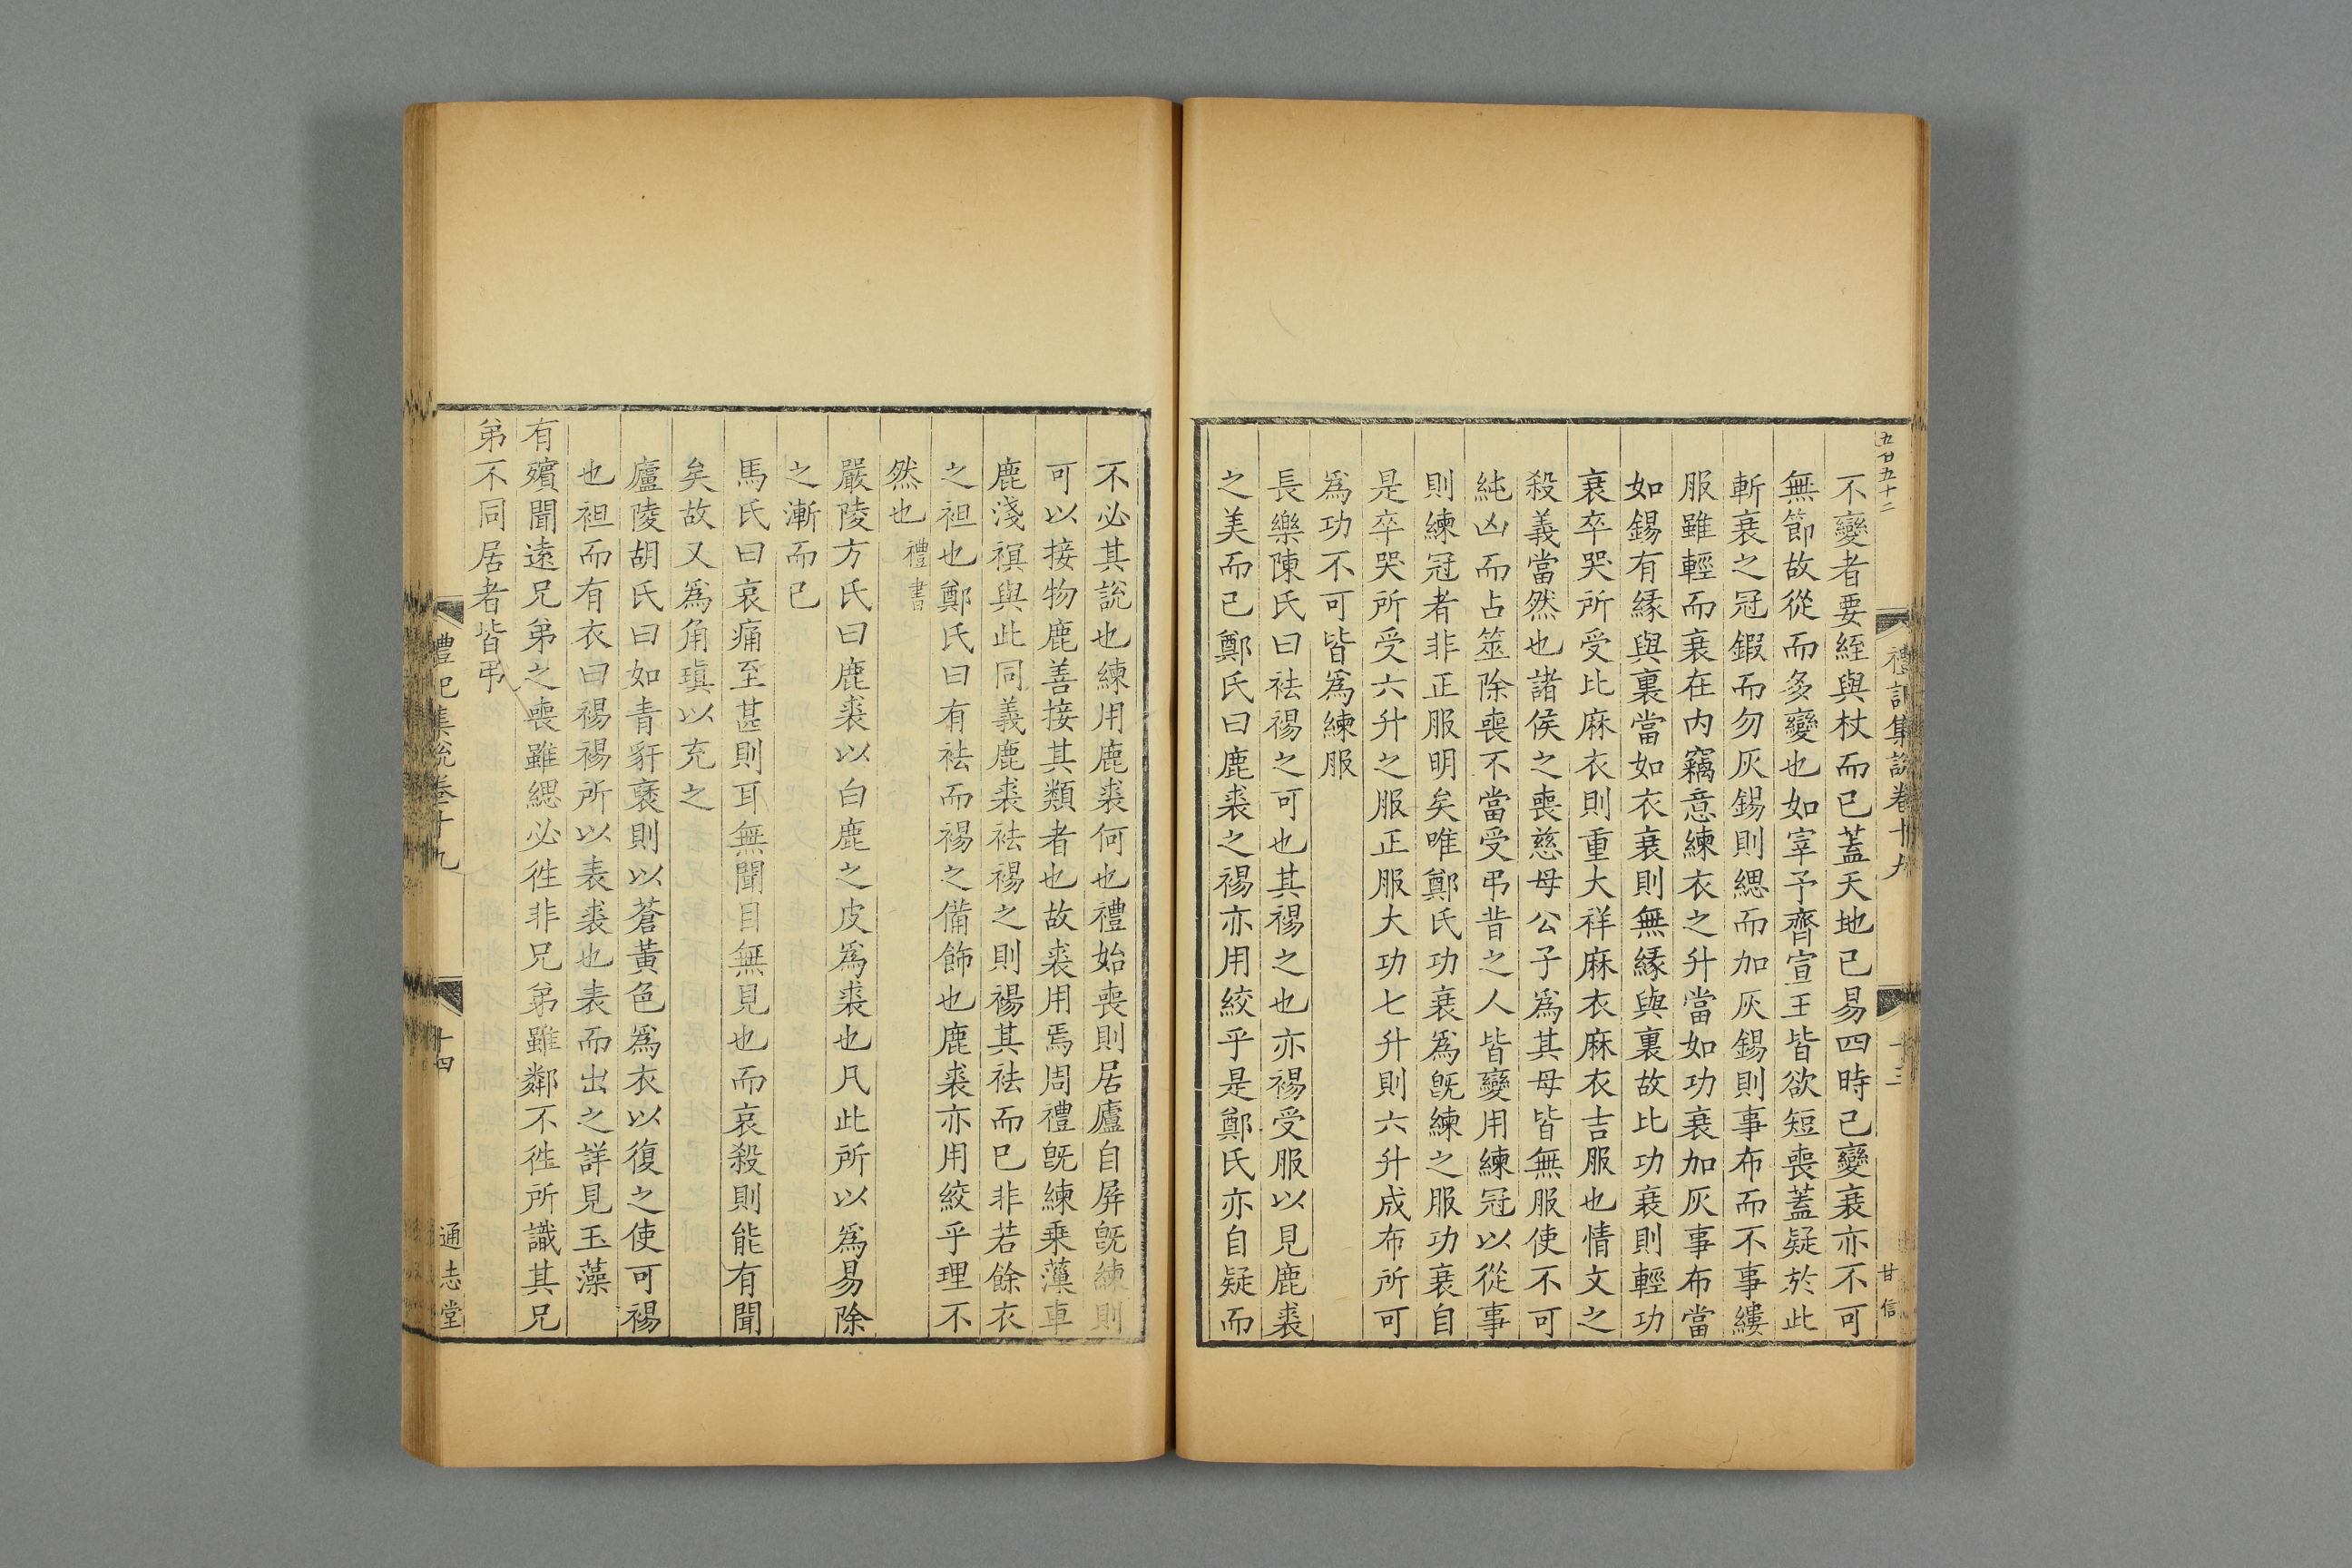 五廿五十二
禮記集說卷十九
十三
甘信
不變者要絰與杖而已蓋天地已易四時已變衰亦不可
無節故從而多變也如宰予齊宣王皆欲短喪蓋疑於此
斬衰之冠鍜而勿灰錫則緦而加灰錫則事布而不事縷
服雖輕而衰在内竊意練衣之升當如功衰加灰事布當
如錫有縁與裏當如衣衰則無縁與裏故比功衰則輕功
衰卒哭所受比麻衣則重大祥麻衣麻衣吉服也情文之
殺義當然也諸侯之喪慈母公子爲其母皆無服使不可
純凶而占筮除喪不當受弔昔之人皆變用練冠以從事
則練冠者非正服明矣唯鄭氏功衰爲旣練之服功衰自
是卒哭所受六升之服正服大功七升則六升成布所可
爲功不可皆爲練服
長樂陳氏曰袪裼之可也其裼之也亦裼受服以見鹿裘
之美而已鄭氏曰鹿裘之裼亦用絞乎是鄭氏亦自疑而
不必其說也練用鹿裘何也禮始喪則居廬自屏旣練則
可以接物鹿善接其類者也故裘用焉周禮旣練乗薻車
鹿淺𧜀與此同義鹿裘袪裼之則裼其袪而巳非若餘衣
之袒也鄭氏曰有袪而裼之備飾也鹿裘亦用絞乎理不
然也禮書
嚴陵方氏曰鹿裘以白鹿之皮爲裘也凡此所以爲易除
之漸而已
馬氏曰哀痛至甚則耳無聞目無見也而哀殺則能有聞
矣故又爲角瑱以充之
廬陵胡氏曰如青豻褎則以蒼黃色爲衣以復之使可裼
也袒而有衣曰裼裼所以表裘也表而出之詳見玉藻
有殯聞遠兄弟之喪雖緦必徃非兄弟雖鄰不徃所識其兄
弟不同居者皆弔
禮記集說卷十九
十四
通志堂